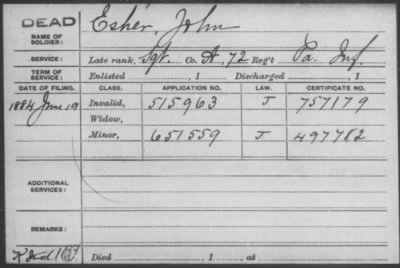 DEAD
NAME OF SOLDIER: Esher, John
SERVICE: Late rank, Sgt. Co. A, 72 Reg't Pa. Inf.
TERM OF SERVICE: Enlisted , 1 Discharged , 1
DATE OF FILING. CLASS. APPLICATION NO. LAW. CERTIFICATE NO.
1884 June 19 Invalid, 515963 J 757179
Widow,
Minor, 651559 J 497782
ADDITIONAL SERVICES:
REMARKS:
Died , 1 , at